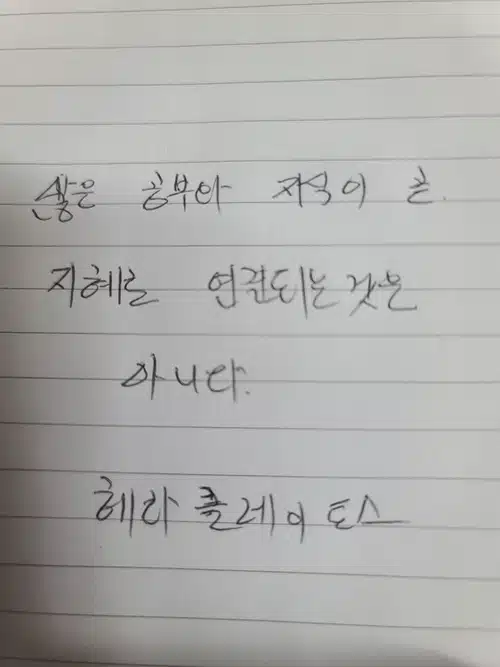 많은 공부와 지식이 곧
지혜로 연결되는 것은
아니다.
헤라클레이토스